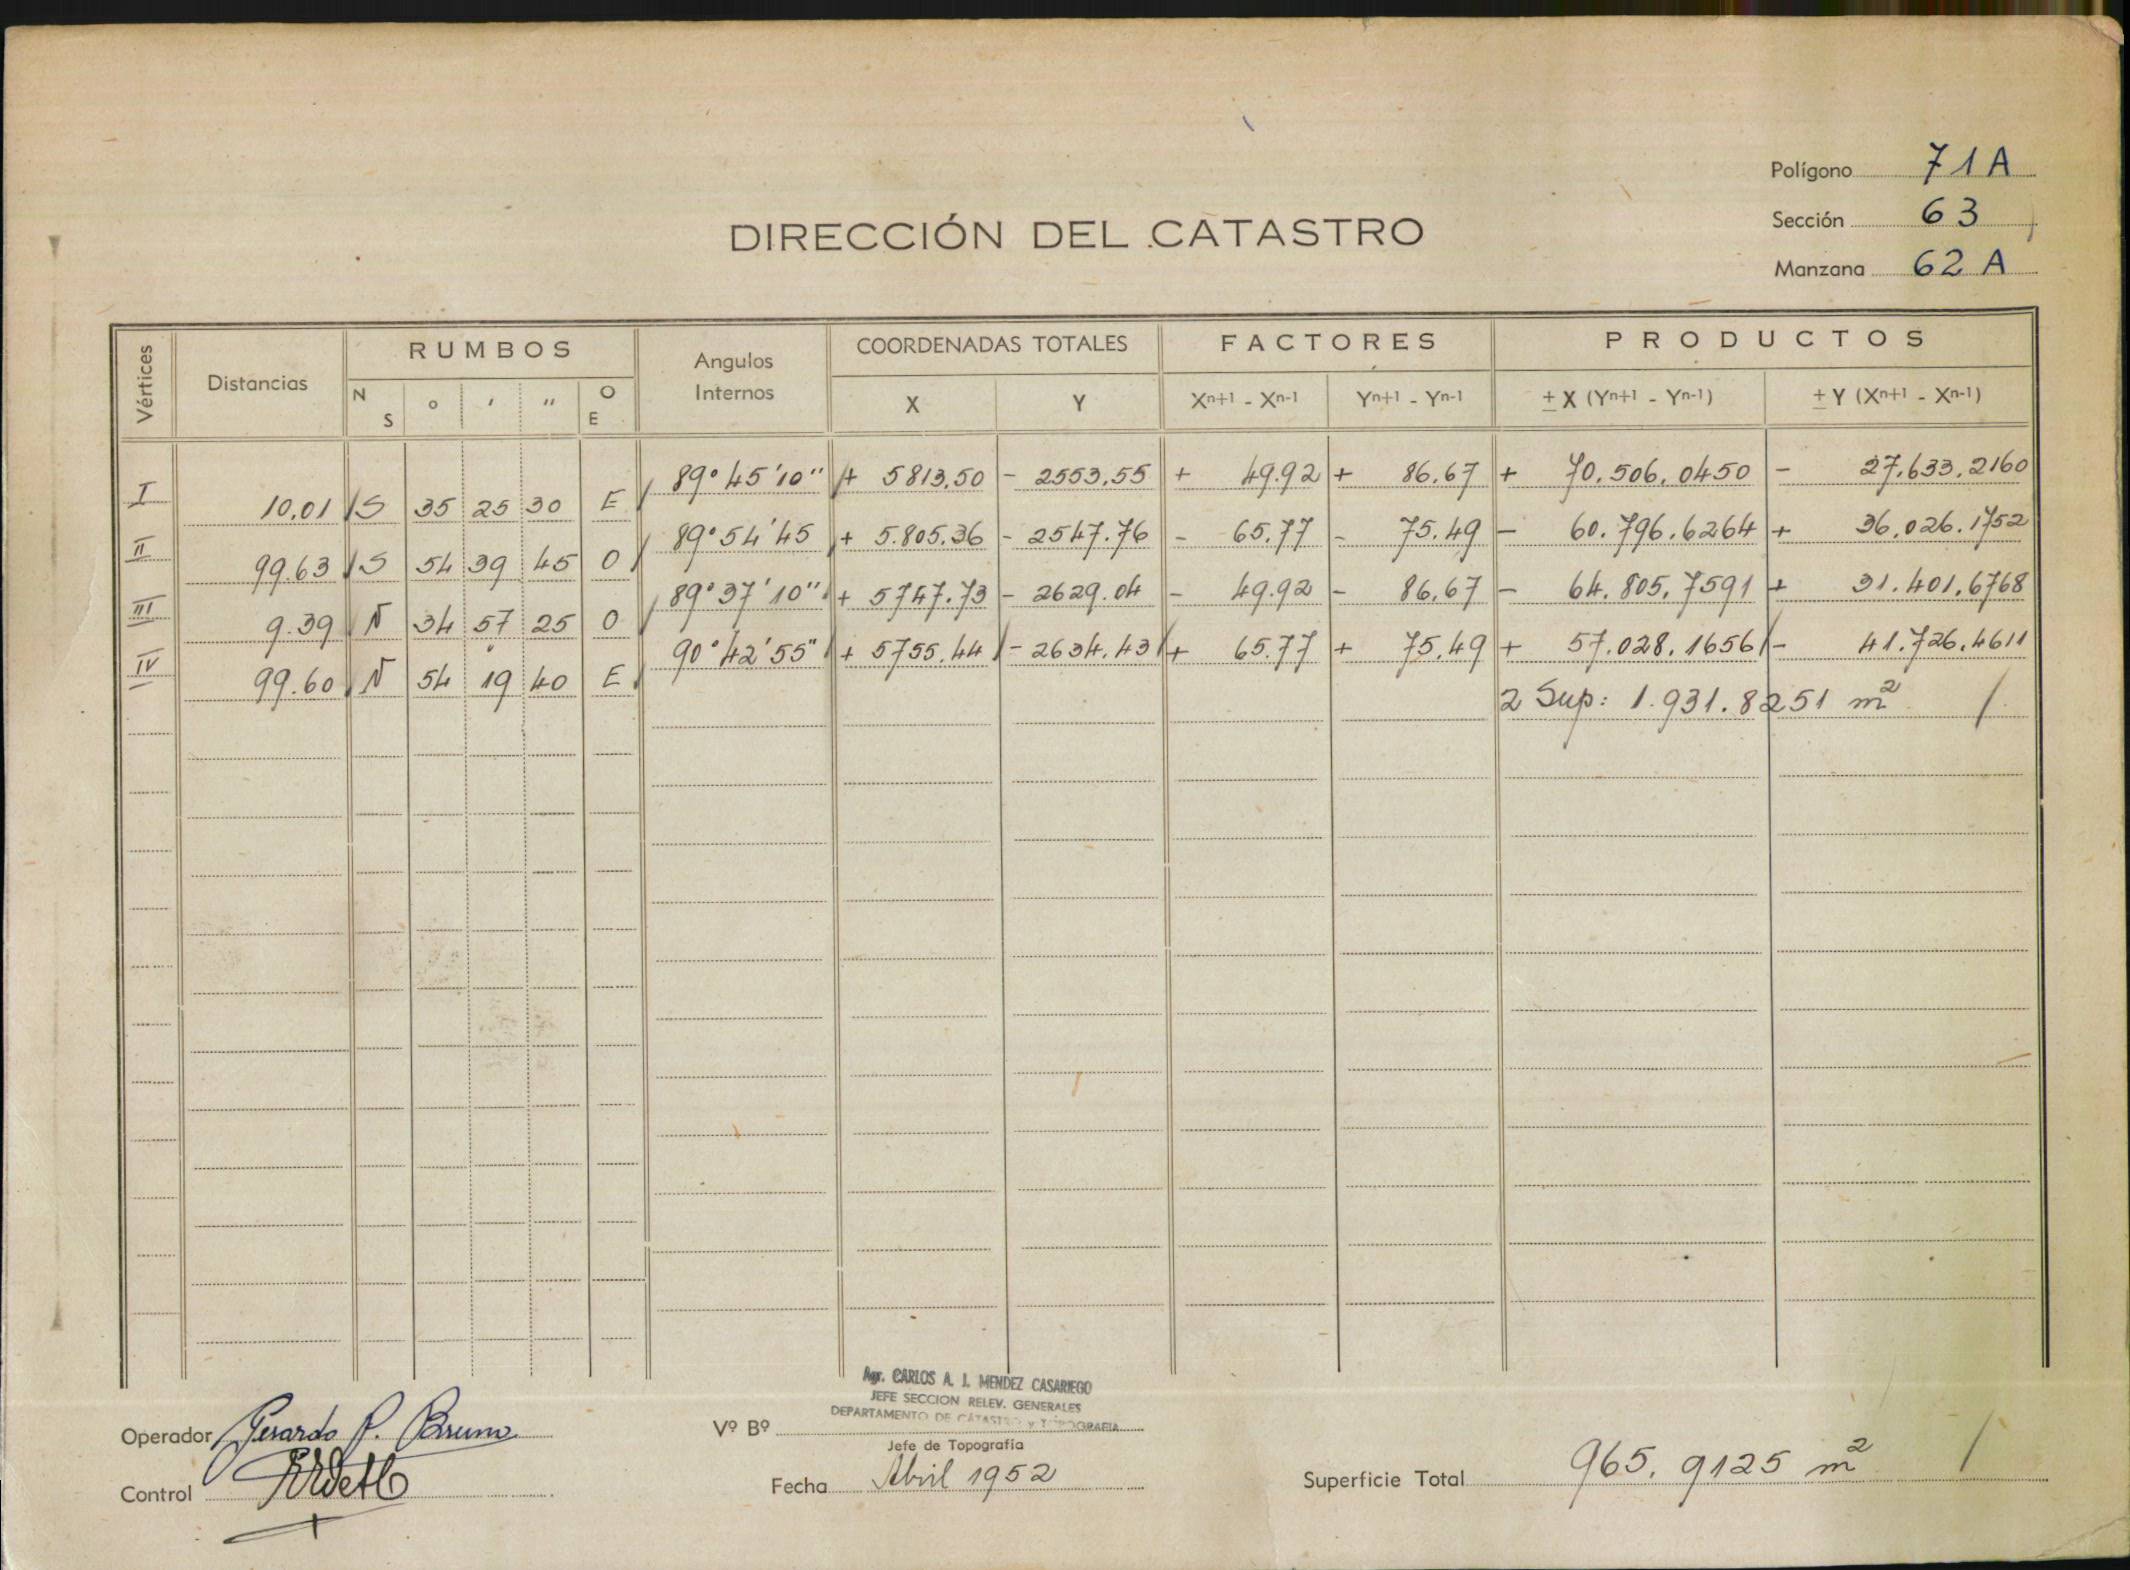 Polígono 71A
Sección 63
Manzana 62 A
DIRECCIÓN DEL CATASTRO
Vértices Distancias RUMBOS Angulos Internos COORDENADAS TOTALES FACTORES PRODUCTOS
N S ° ' " O E X Y Xn+1 - Xn-1 Yn+1 - Yn-1 ± X (Yn+1 - Yn-1) ± Y (Xn+1 - Xn-1)
89° 45' 10" + 5813,50 - 2553,55 + 49.92 + 86,67 + 70,506,0450 - 27,633,2160
I 10,01 S 35 25 30 E
89° 54' 45 + 5.805,36 - 2547.76 - 65,77 - 75.49 - 60.796.6264 + 36,026.1752
II 99.63 S 54 39 45 O
89° 37' 10" + 5747.73 - 2629.04 - 49.92 - 86,67 - 64.805,7591 + 31.401,6768
III 9.39 N 34 57 25 O
90° 42' 55" + 5755,44 - 2634,43 + 65.77 + 75,49 + 57.028.1656 - 41.726,4611
IV 99.60 N 54 19 40 E
2 Sup: 1.931.8251 m²
Agr. CARLOS A. J. MENDEZ CASARIEGO
JEFE SECCION RELEV. GENERALES
DEPARTAMENTO DE CATASTRO y TOPOGRAFIA
Operador Gerardo P. Bruno
Vº Bº
Jefe de Topografía
Control
Fecha Abril 1952
Superficie Total 965. 9125 m²